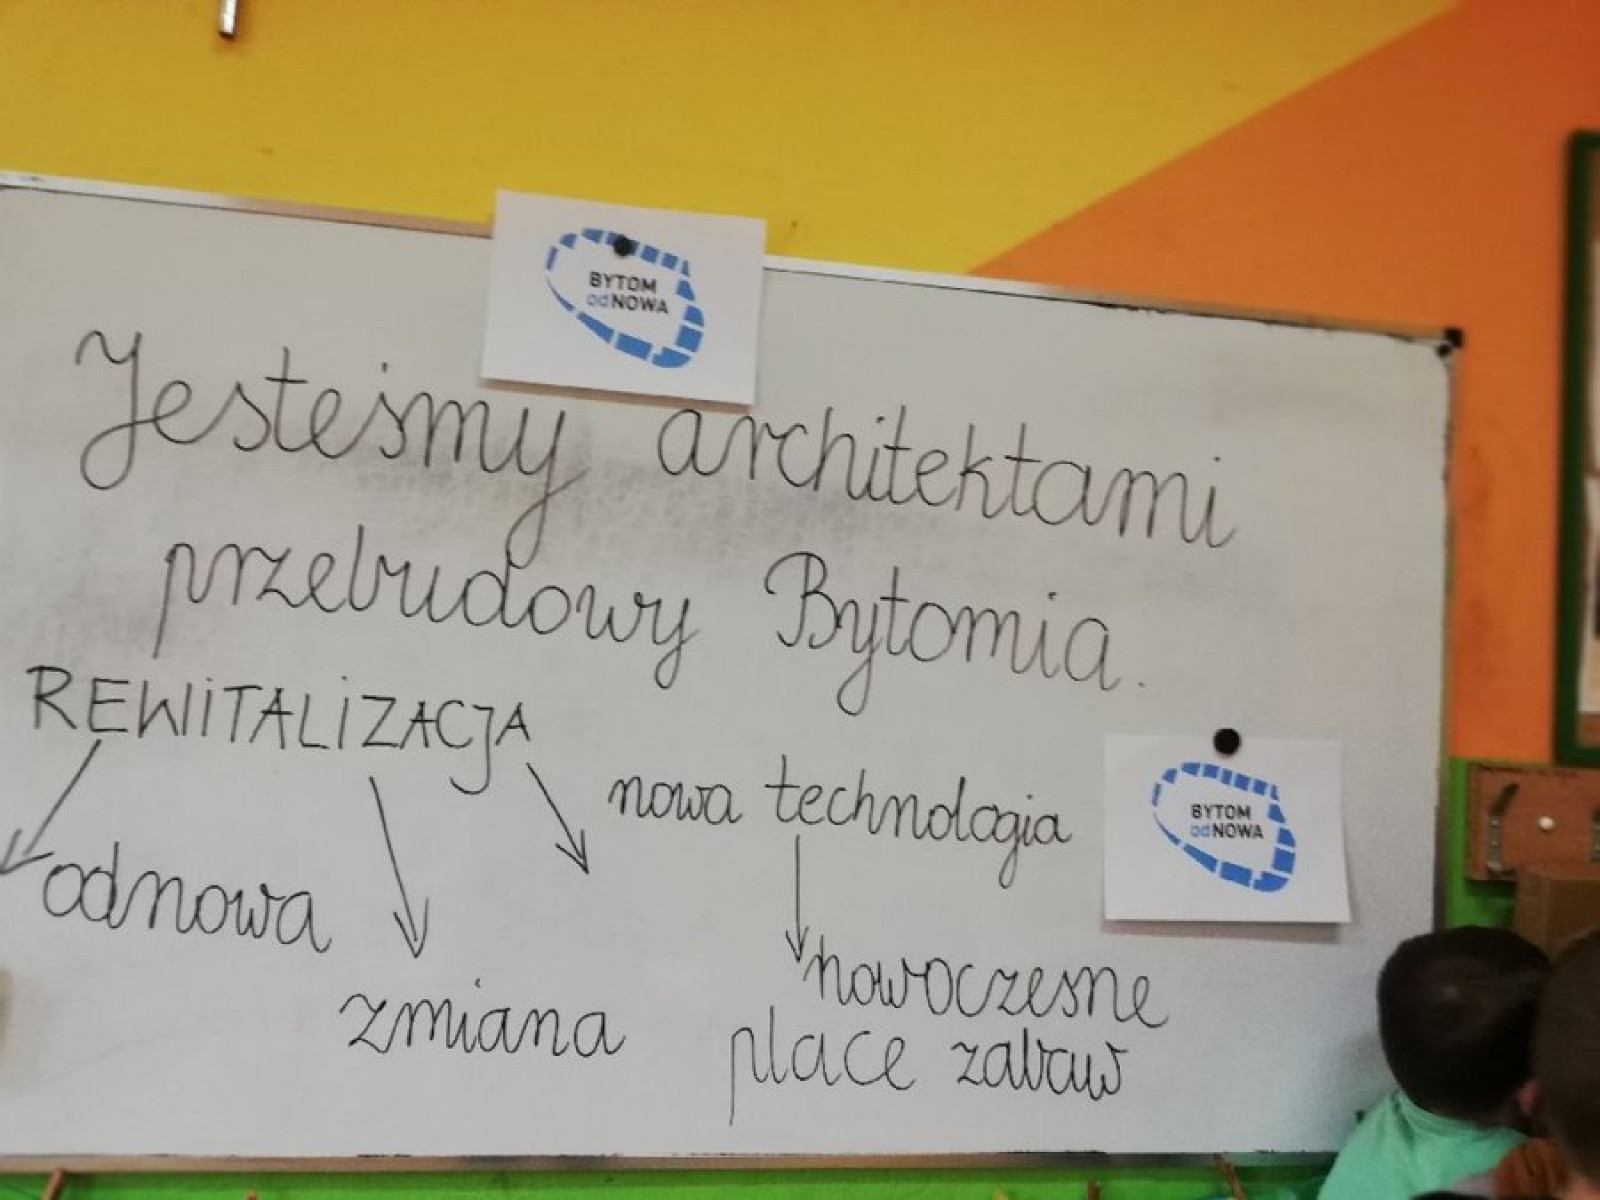 BYTOM
odNOWA
Jesteśmy architektami
przebudowy Bytomia.
REWITALIZACJA
nowa technologia
BYTOM
odNOWA
odnowa
zmiana
nowoczesne
place zabaw